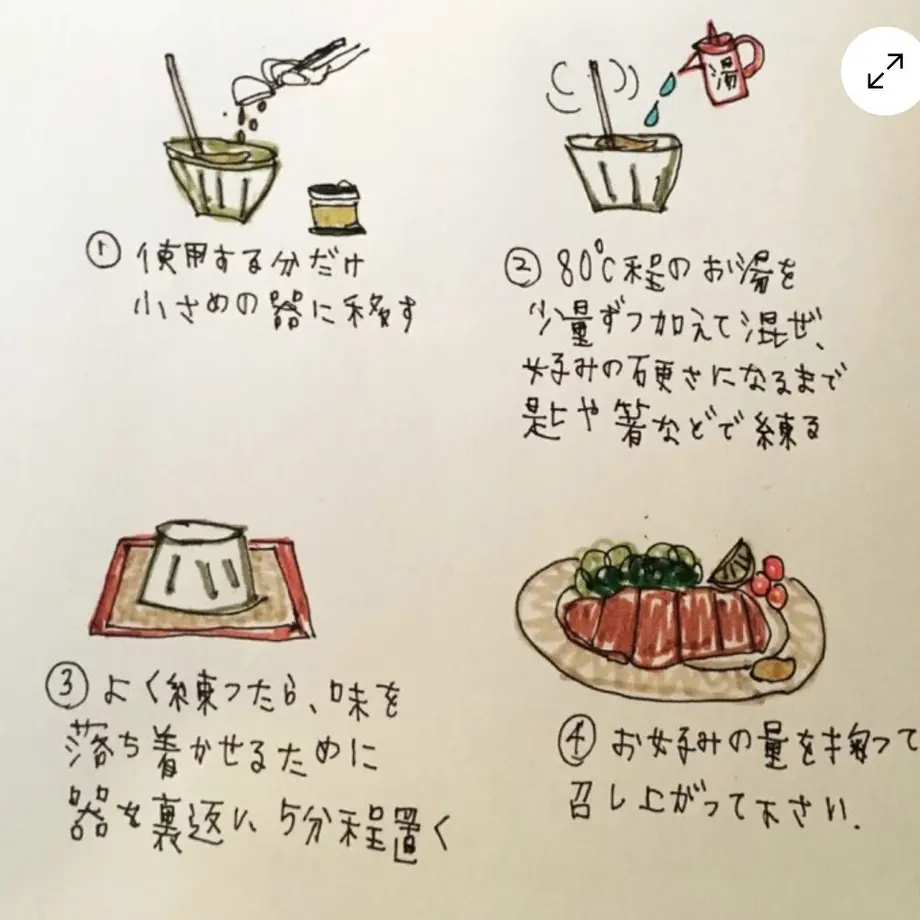 湯
① 使用する分だけ
小さめの器に移す
② 80℃程のお湯を
少量ずつ加えて混ぜ、
好みの硬さになるまで
匙や箸などで練る
③ よく練ったら、味を
落ち着かせるために
器を裏返し、5分程置く
④ お好みの量を掬って
召し上がって下さい.